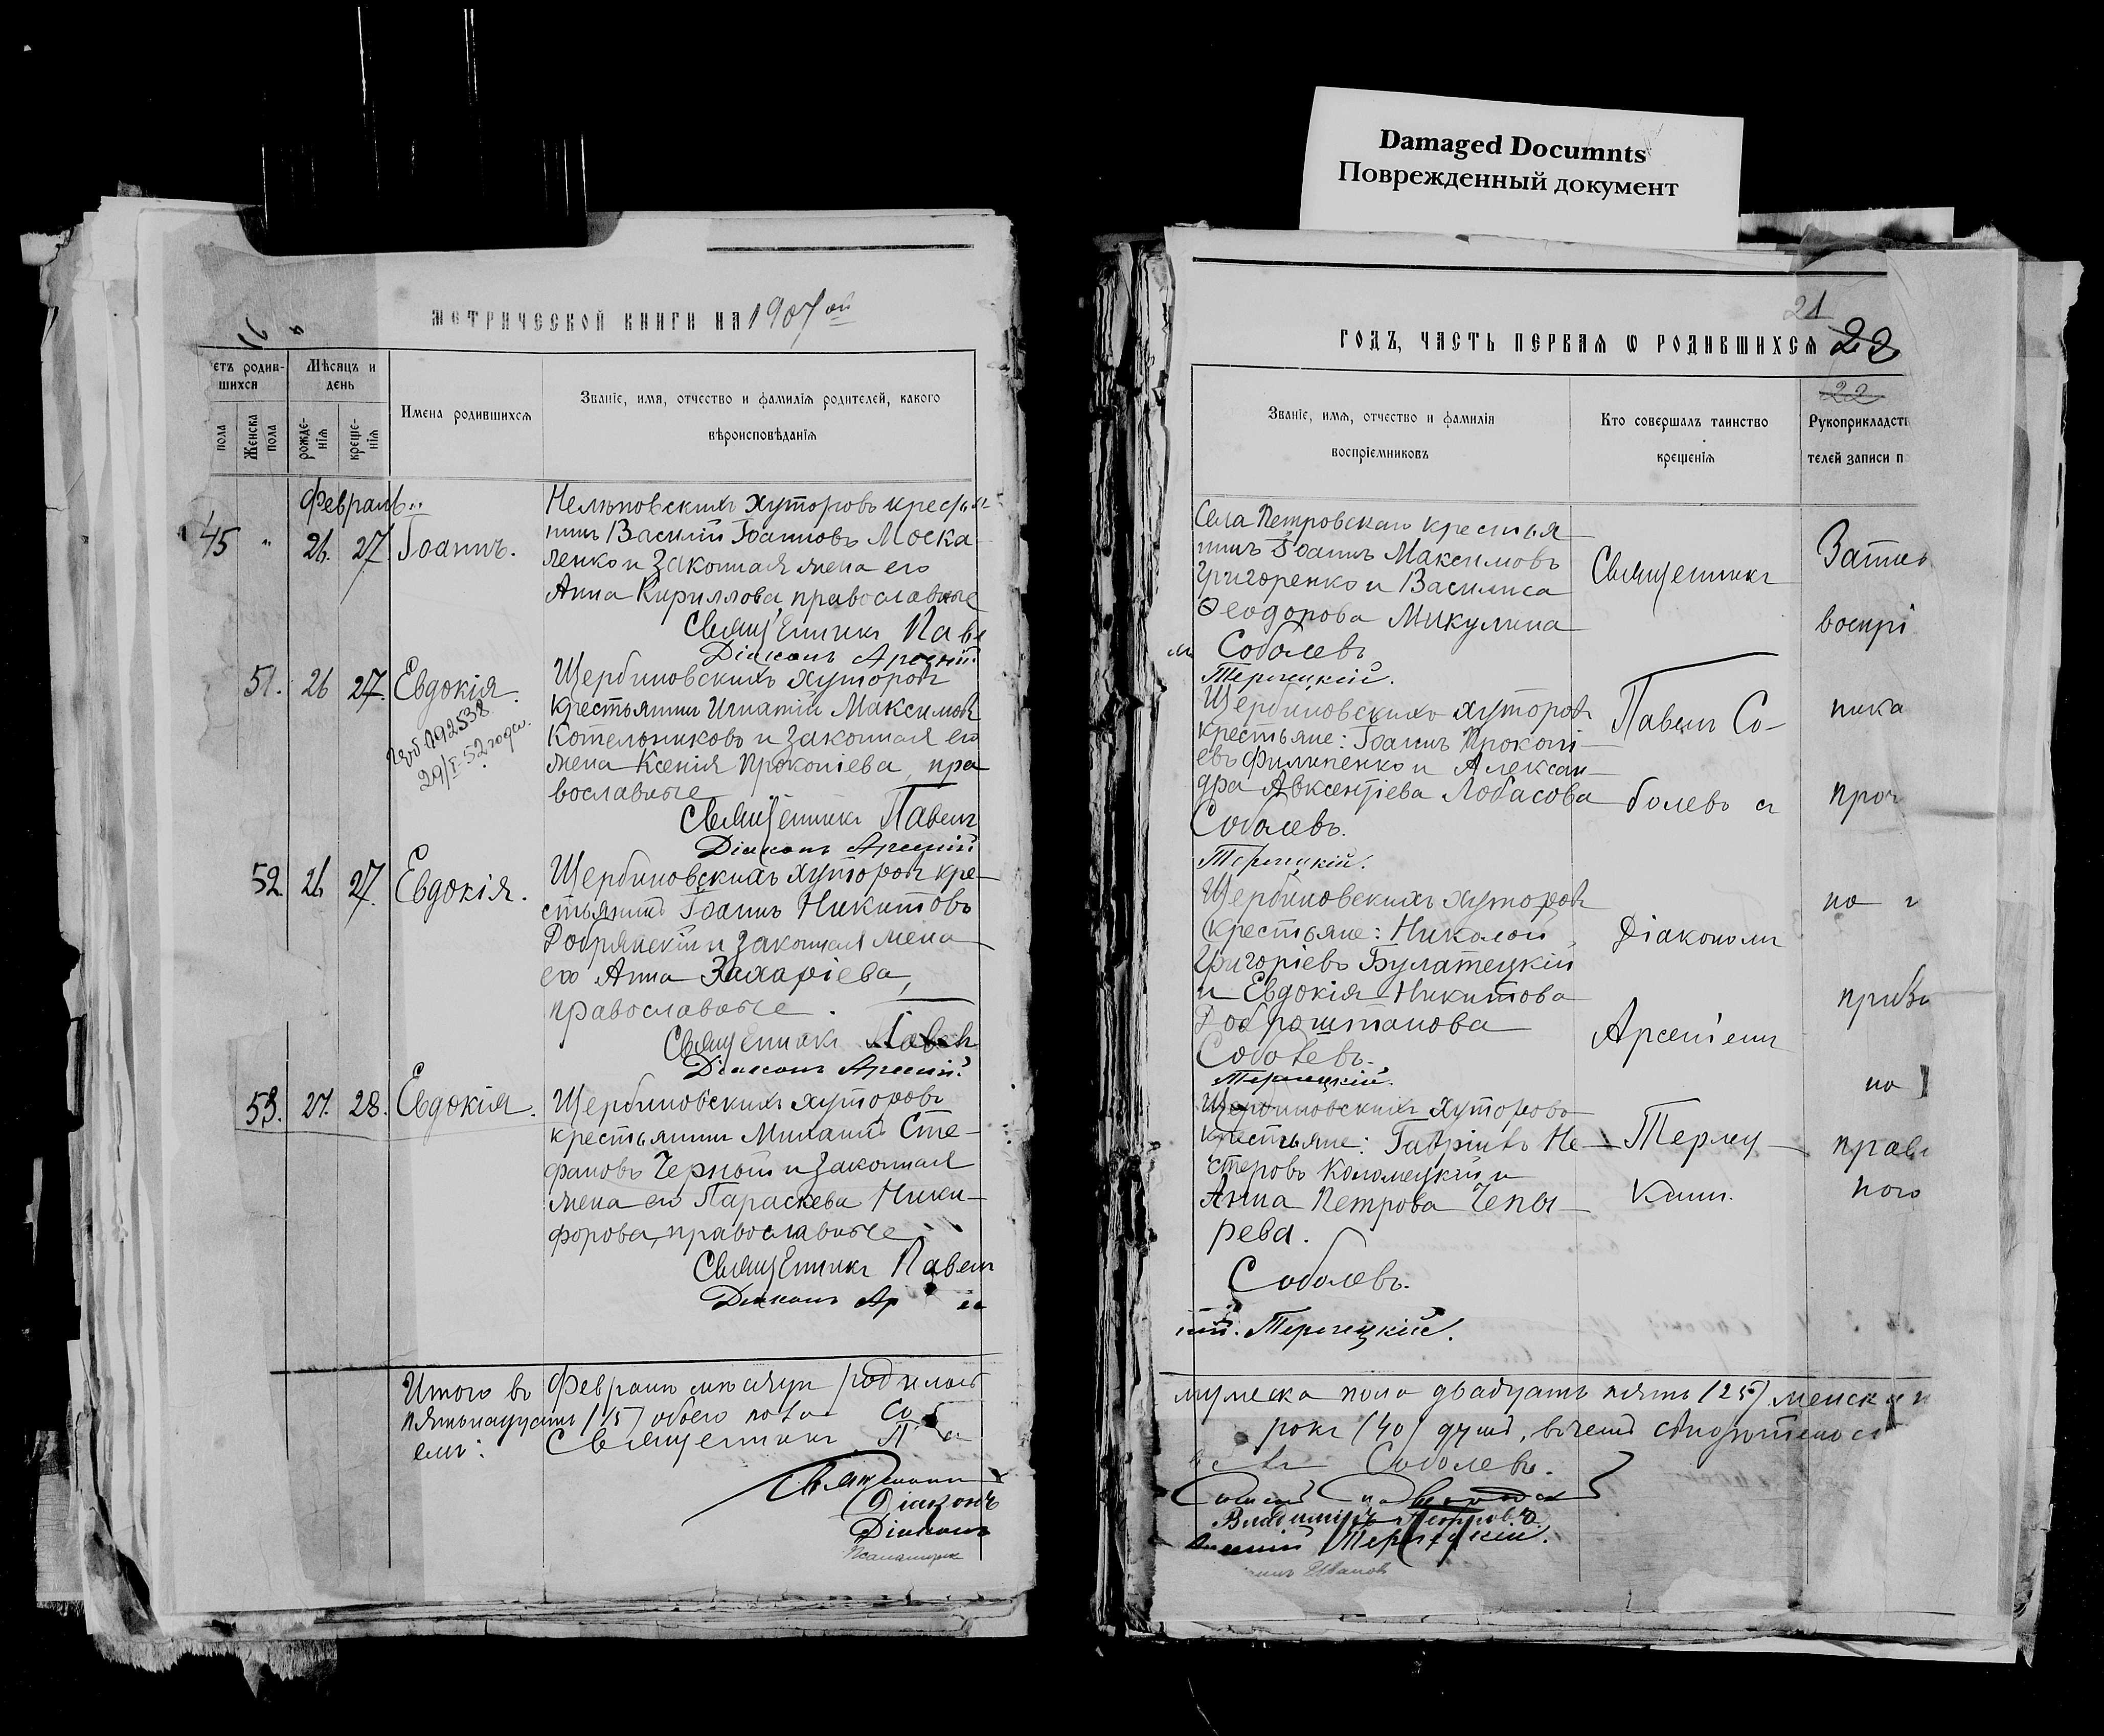 Damaged Documnts
Поврежденный документ
МЕТРИЧЕСКОЙ КНИГИ НА 1907 ой
етъ родив-
шихся
Мѣсяцъ и
день
пола
Женска
пола
рожде-
нія
креще-
нія
Имена родившихся
Званіе, имя, отчество и фамилія родителей, какого
вѣроисповѣданія
Февраль
45 " 26. 27 Іоаннъ.
Нелѣповскихъ хуторовъ крестья
нинъ Василій Іоанновъ Моска
ленко и законная жена его
Анна Кириллова, православные
Священникъ Паве
Діаконъ Арсеній
51. 26 27. Евдокія.
29/I 52 года.
Щербиновскихъ хуторовъ
крестьянинъ Игнатій Максимовъ
Котельниковъ и законная его
жена Ксенія Прокопіева, пра
вославные
Священникъ Павелъ
Діаконъ Арсеній
52. 26 27. Евдокія.
Щербиновскихъ хуторовъ кре-
стьянинъ Іоаннъ Никитовъ
Добрянскій и законная жена
его Анна Захаріева,
православные.
Священникъ Павелъ
Діаконъ Арсеній.
53. 27. 28. Евдокія.
Щербиновскихъ хуторовъ
крестьянинъ Михаилъ Сте-
фановъ Черный и законная
жена его Параскева Ники-
форова, православные
Священникъ Павелъ
Діаконъ Ар
Итого въ Февралѣ мѣсяцѣ родилось
пятнадцать (15) обоего пола со
емъ: Священникъ П
Священникъ
Діаконъ
Діаконъ
Псаломщик
21
ГОДЪ, ЧАСТЬ ПЕРВАЯ Ѡ РОДИВШИХСЯ 22
22
Званіе, имя, отчество и фамилія
воспріемниковъ
Кто совершалъ таинство
крещенія
Рукоприкладст
телей записи п
Села Петровскаго крестья
нинъ Іоаннъ Максимовъ
Григоренко и Василиса
Ѳеодорова Микулина
Соболевъ
Терлецкій.
Щербиновскихъ хуторовъ
крестьяне: Іоаннъ Прокопі-
евъ Филипенко и Алексан-
дра Авксентіева Лобасова
Соболевъ.
Терлецкій.
Щербиновскихъ хуторовъ
крестьяне: Николай
Григоріевъ Булатецкій
и Евдокія Никитова
Доброштанова
Соболевъ.
Терлецкій.
Щербиновскихъ хуторовъ
крестьяне: Гавріилъ Не-
стеровъ Коломецкій и
Анна Петрова Чепы-
рева.
Соболевъ.
ній. Терлецкій.
Священникъ
Павелъ Со-
болевъ съ
Діакономъ
Арсеніемъ
Терлец-
кимъ.
воспрі
ника
по
по
прав
ного
мужеска пола двадцать пять (25) женска п
рокъ (40) душъ, въ чемъ
Соболевъ.
Владимиръ
Терлецкій.
Иванов